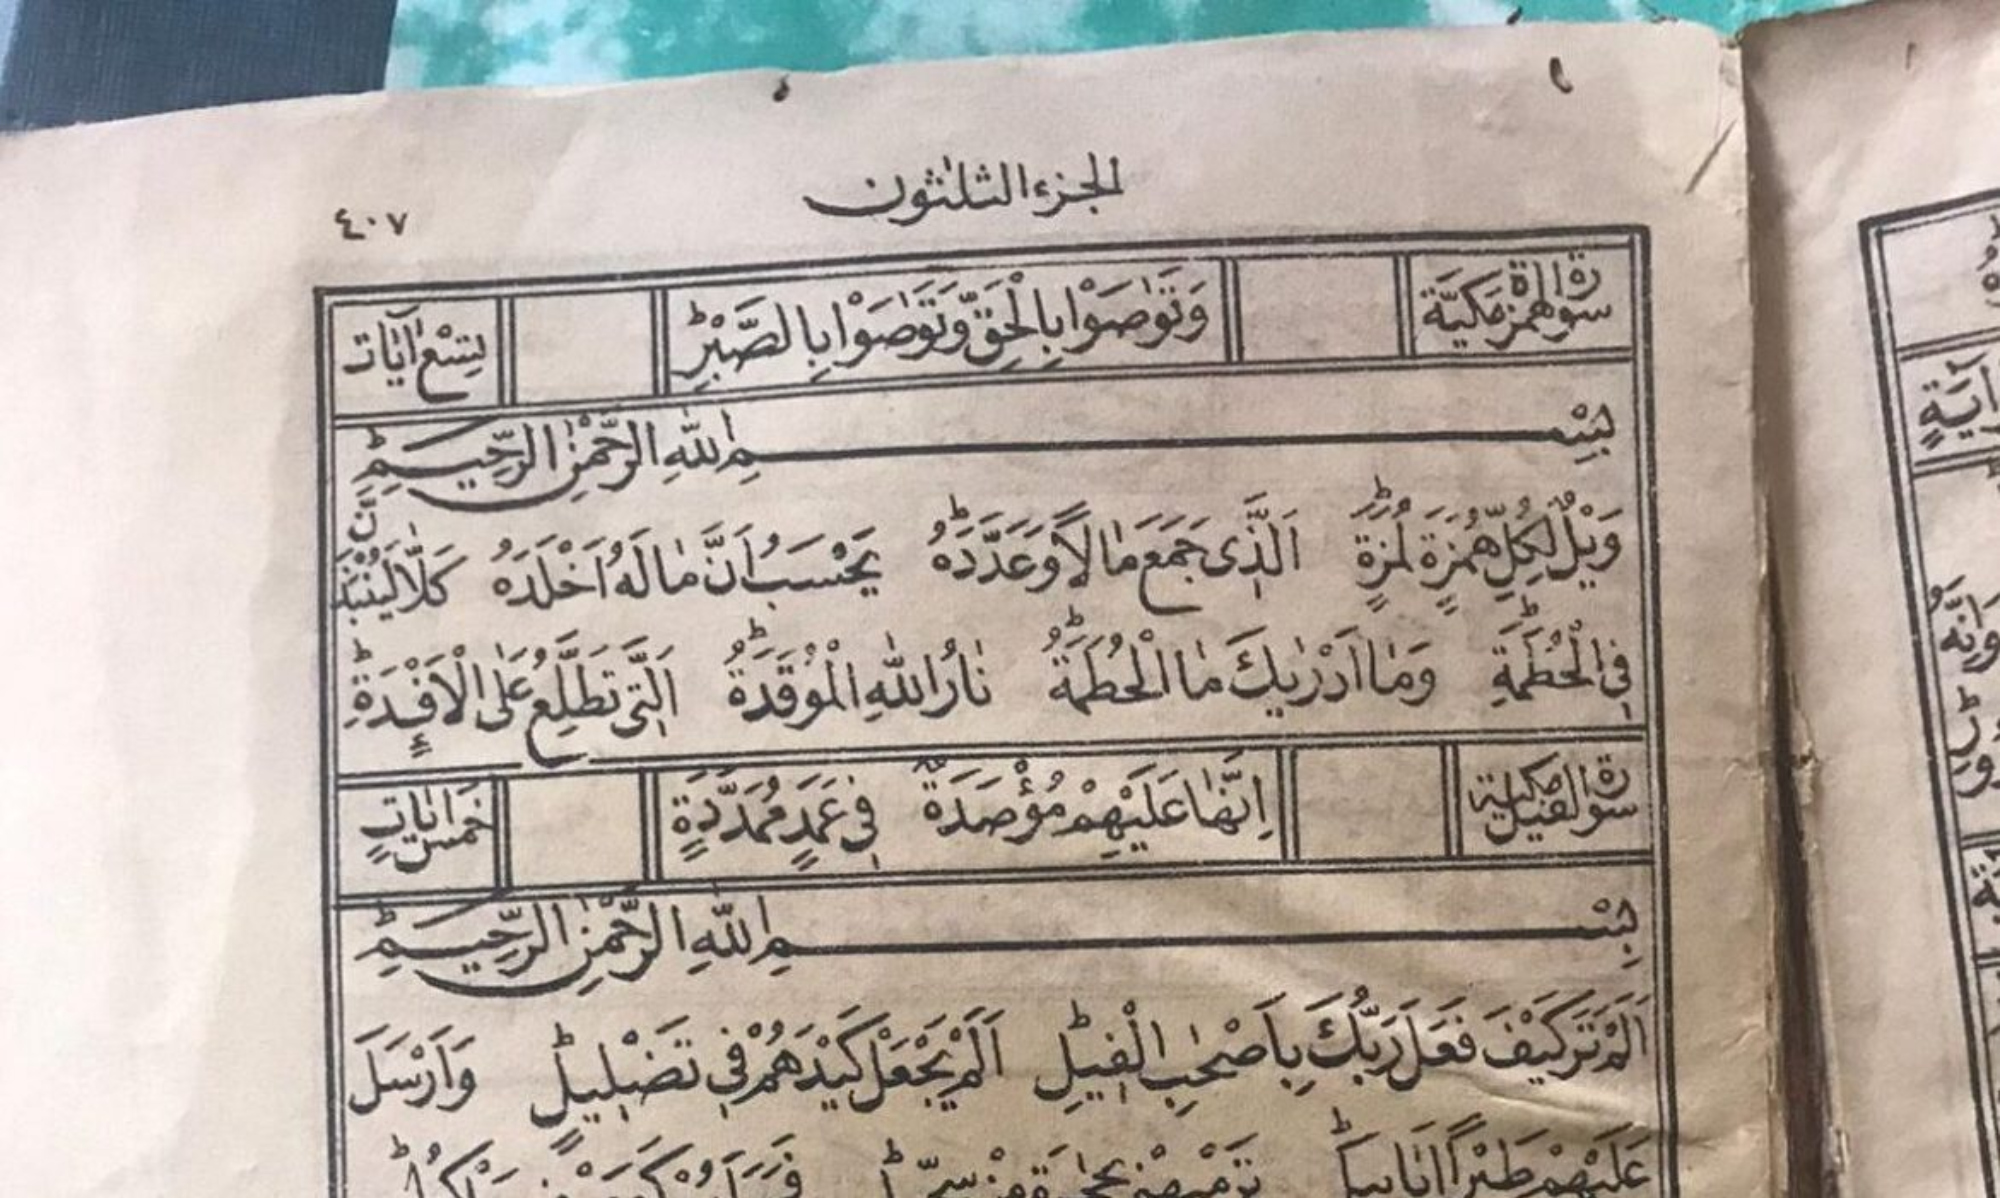 الجزء الثلثون
٤٠٧
سورة الهمزة مكية
وَتَوَاصَوْا بِالْحَقِّ وَتَوَاصَوْا بِالصَّبْرِ ط
تِسْعُ اٰيَات
بِسْمِ اللّٰهِ الرَّحْمٰنِ الرَّحِيمِ ط
وَيْلٌ لِكُلِّ هُمَزَةٍ لُمَزَةٍ ط اَلَّذِى جَمَعَ مَالًا وَعَدَّدَهُ ط يَحْسَبُ اَنَّ مَالَهُ اَخْلَدَهُ كَلَّا لَيُنْبَذَنَّ
فِى الْحُطَمَةِ ط وَمَا اَدْرٰيكَ مَا الْحُطَمَةُ ط نَارُ اللّٰهِ الْمُوْقَدَةُ ط اَلَّتِى تَطَّلِعُ عَلَى الْاَفْئِدَةِ ط
سورة الفيل مكية
اِنَّهَا عَلَيْهِمْ مُؤْصَدَةٌ فِى عَمَدٍ مُمَدَّدَةٍ
خمس اٰيَاتٍ
بِسْمِ اللّٰهِ الرَّحْمٰنِ الرَّحِيمِ ط
اَلَمْ تَرَ كَيْفَ فَعَلَ رَبُّكَ بِاَصْحٰبِ الْفِيْلِ ط اَلَمْ يَجْعَلْ كَيْدَهُمْ فِى تَضْلِيلٍ ط وَاَرْسَلَ
عَلَيْهِمْ طَيْرًا اَبَابِيلَ ط تَرْمِيهِمْ بِحِجَارَةٍ مِنْ سِجِّيلٍ ط